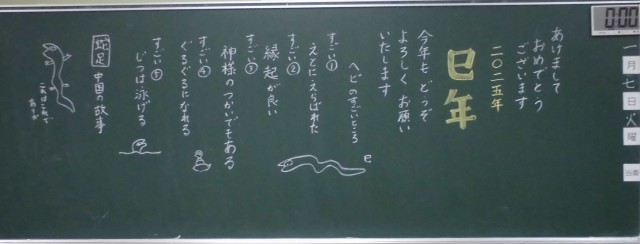 あけまして
おめでとう
ございます
二〇二五年
巳年
今年も、どうぞ
よろしく お願い
いたします
ヘビのすごいところ
すごい①
えとにえらばれた
すごい②
縁起が良い
すごい③
神様のつかいでもある
すごい④
ぐるぐるになれる
すごい⑤
じつは泳げる
蛇足 中国の故事
0:00
一
月
七
日
火
曜